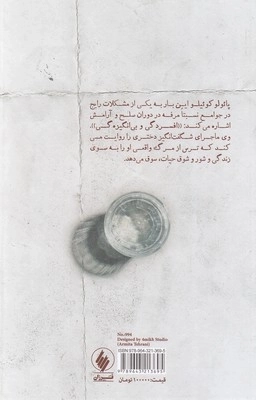 پائولو کوئیلو این بار به یکی از مشکلات رایج
در جوامع نسبتاً مرفه در دوران صلح و آرامش
اشاره می‌کند: «افسردگی و بی‌انگیزه‌گی»،
وی ماجرای شگفت‌انگیز دختری را روایت می
کند که ترس از مرگ واقعی او را به سوی
زندگی و شور و شوق حیات، سوق می‌دهد.
Designed by Amikh Studio
ISBN 978-964-321-369-5
9789643213695
قیمت: ۱۰۰۰۰۰ تومان